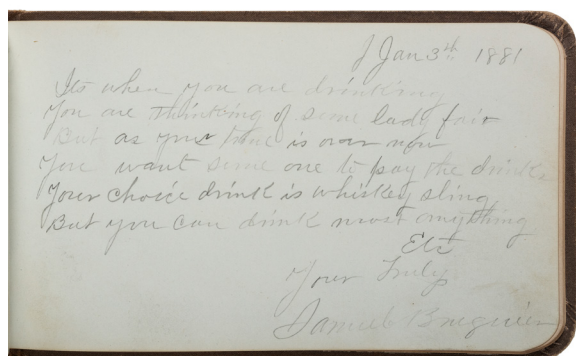 Jan 3th 1881
Its when you are drinking
You are thinking of some lady fair
But as your time is over now
You want some one to pay the drinks
Your choice drink is whiskey sling
But you can drink most anything
Etc
Your Truly
Samuel